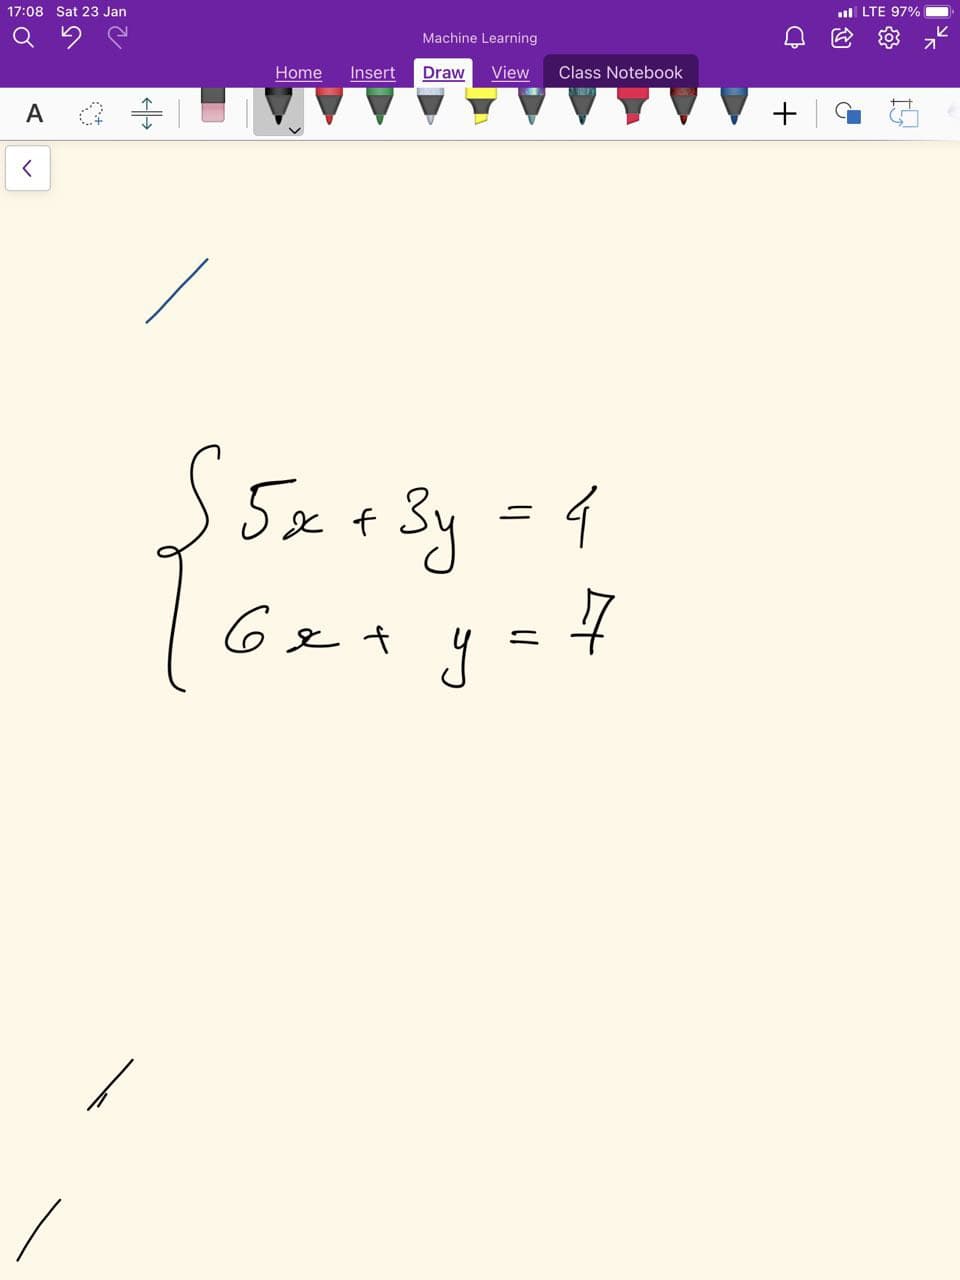 17:08 Sat 23 Jan LTE 97%
Machine Learning
Home Insert Draw View Class Notebook
A
5x + 3y = 4
6x + y = 7